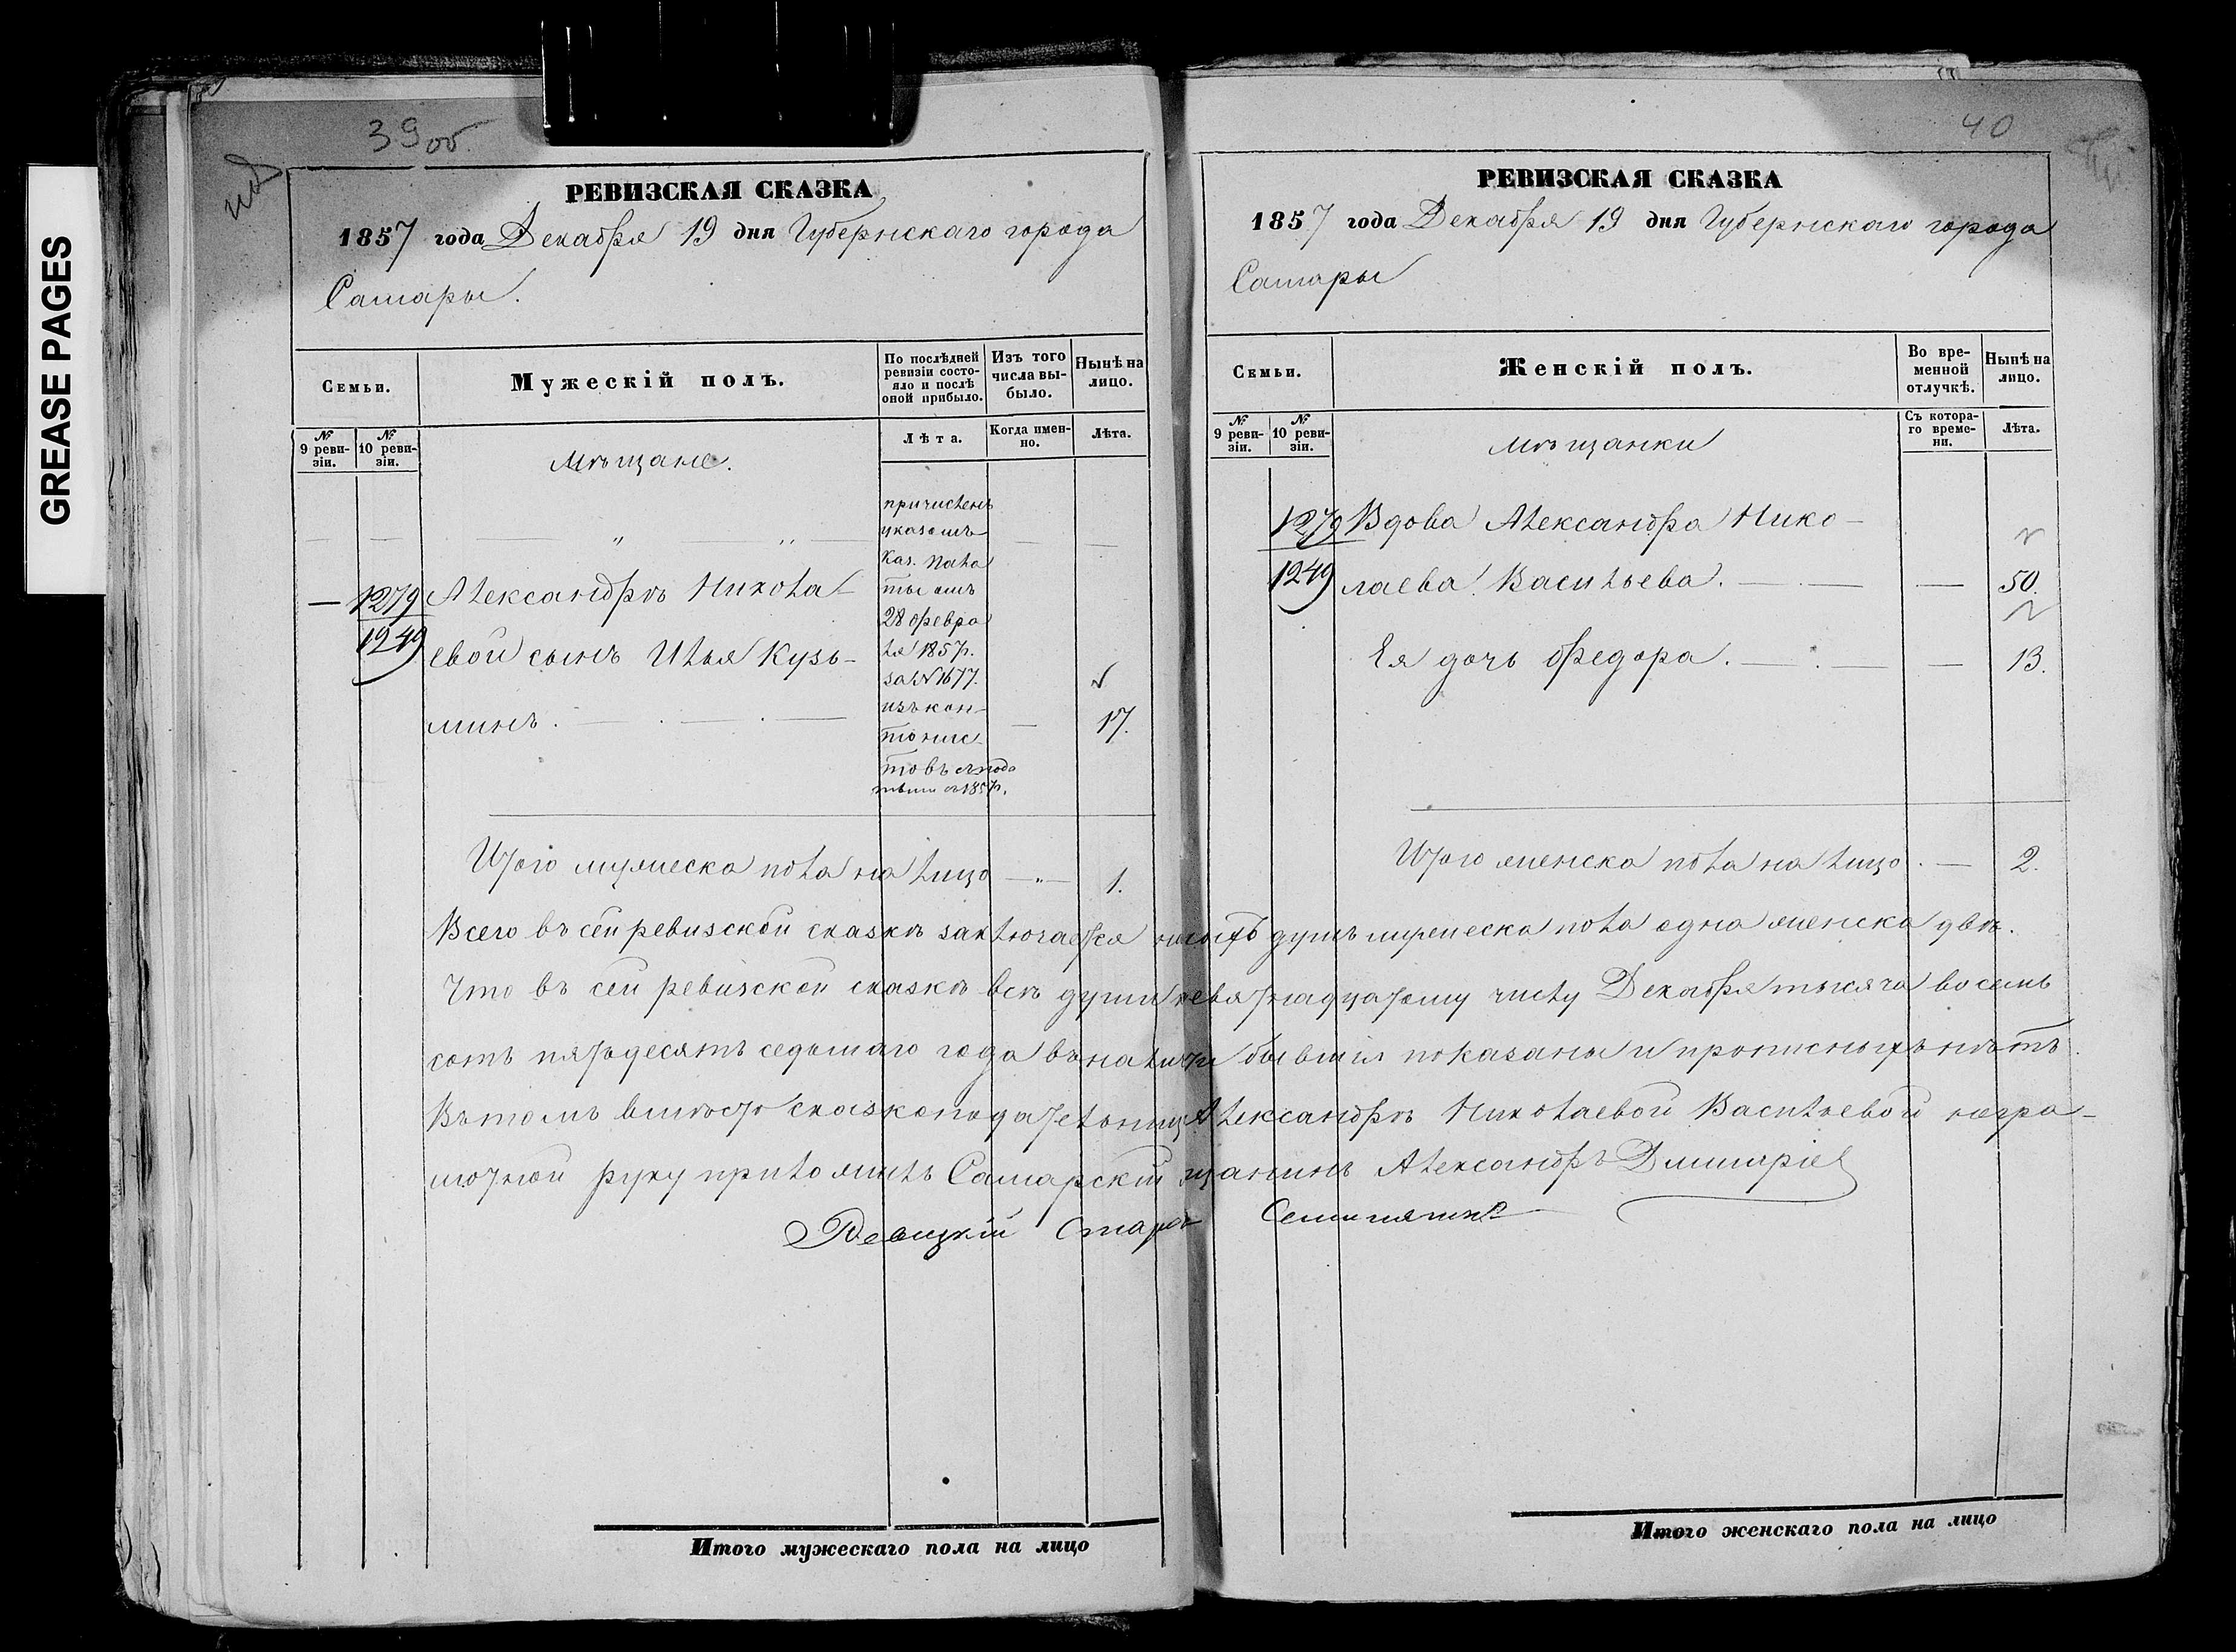 GREASE PAGES
39 об.
РЕВИЗСКАЯ СКАЗКА
1857 года Декабря 19 дня Губернскаго города
Самары.
Семьи.
Мужескій полъ.
По послѣдней ревизіи состояло и послѣ оной прибыло.
Изъ того числа выбыло.
Нынѣ на лицо.
№ 9 ревизіи.
№ 10 ревизіи.
Лѣта.
Когда именно.
Лѣта.
Мѣщане.
причисленъ
указомъ
Каз. Пала
ты отъ
28 Февра
ля 1857г.
за № 1677.
изъ кан-
тонис-
товъ
1279
1249
Александрѣ Никола-
евой сынъ Илья Кузь-
минъ.
17.
Итого мужеска пола на лицо
1.
40
РЕВИЗСКАЯ СКАЗКА
1857 года Декабря 19 дня Губернскаго города
Самары
Семьи.
Женскій полъ.
Во временной отлучкѣ.
Нынѣ на лицо.
№ 9 ревизіи.
№ 10 ревизіи.
Съ котораго времени.
Лѣта.
Мѣщанки
1279
1249
Вдова Александра Нико-
лаева Васильева.
50.
Ея дочь Федора.
13.
Итого женска пола на лицо.
2.
Всего въ сей ревизской сказкѣ заключается душъ мужеска пола одна женска двѣ.
Что въ сей ревизской сказкѣ всѣ души девятнадцатому числу Декабря тысяча восемь
сотъ пятьдесятъ седьмаго года въ наличіи бывшія показаны и прописныхъ нѣтъ.
Въ томъ вмѣсто сказкоподательницы Александрѣ Николаевой Васильевой негра-
мотной руку приложилъ Самарскій мѣщанинъ Александръ Дмитріев
Итого мужескаго пола на лицо
Итого женскаго пола на лицо